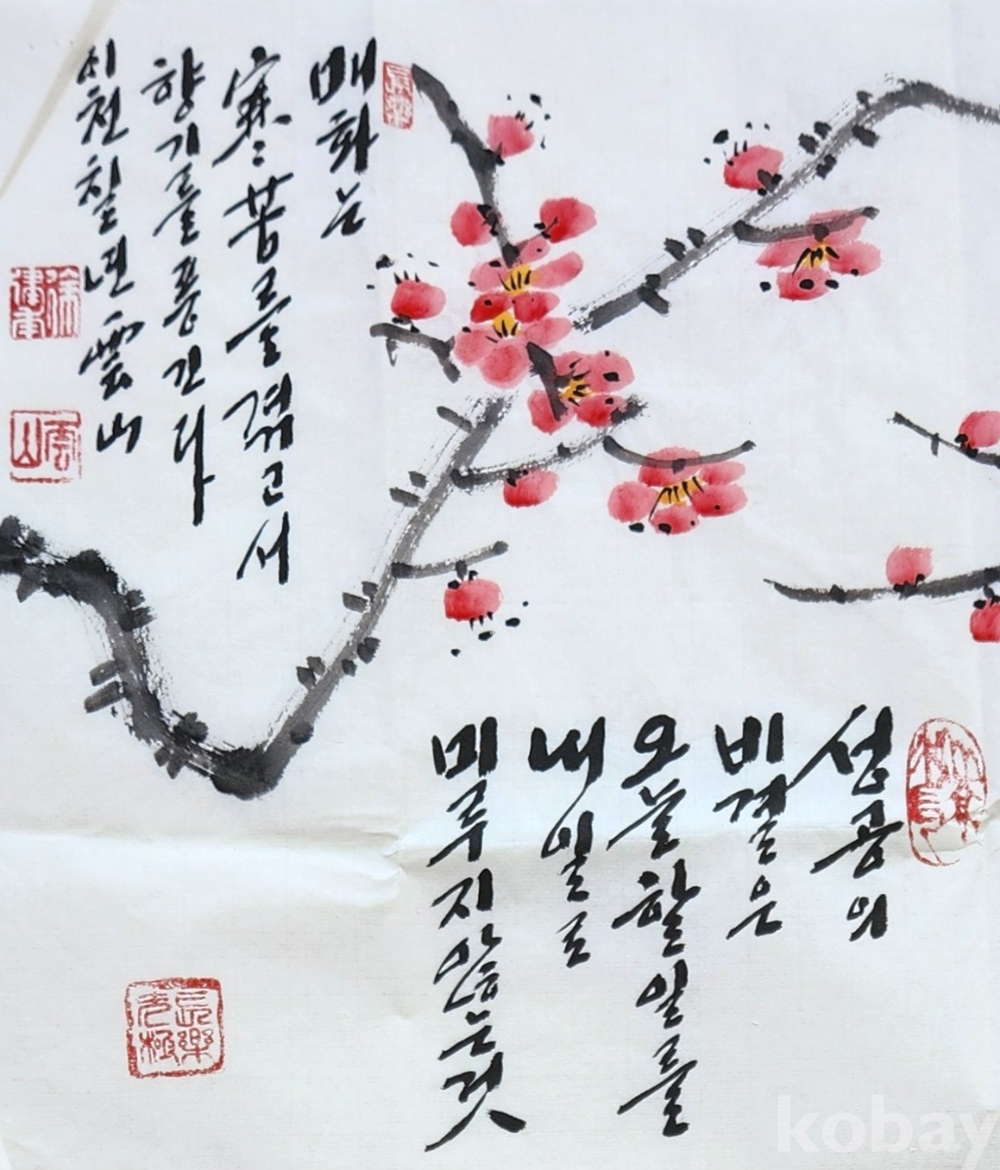 매화는
寒苦를 겪고서
향기를 풍긴다
이천칠년 雲山
성공의
비결은
오늘 할 일을
내일로
미루지 않는 것
長樂
雲山
長樂
kobay